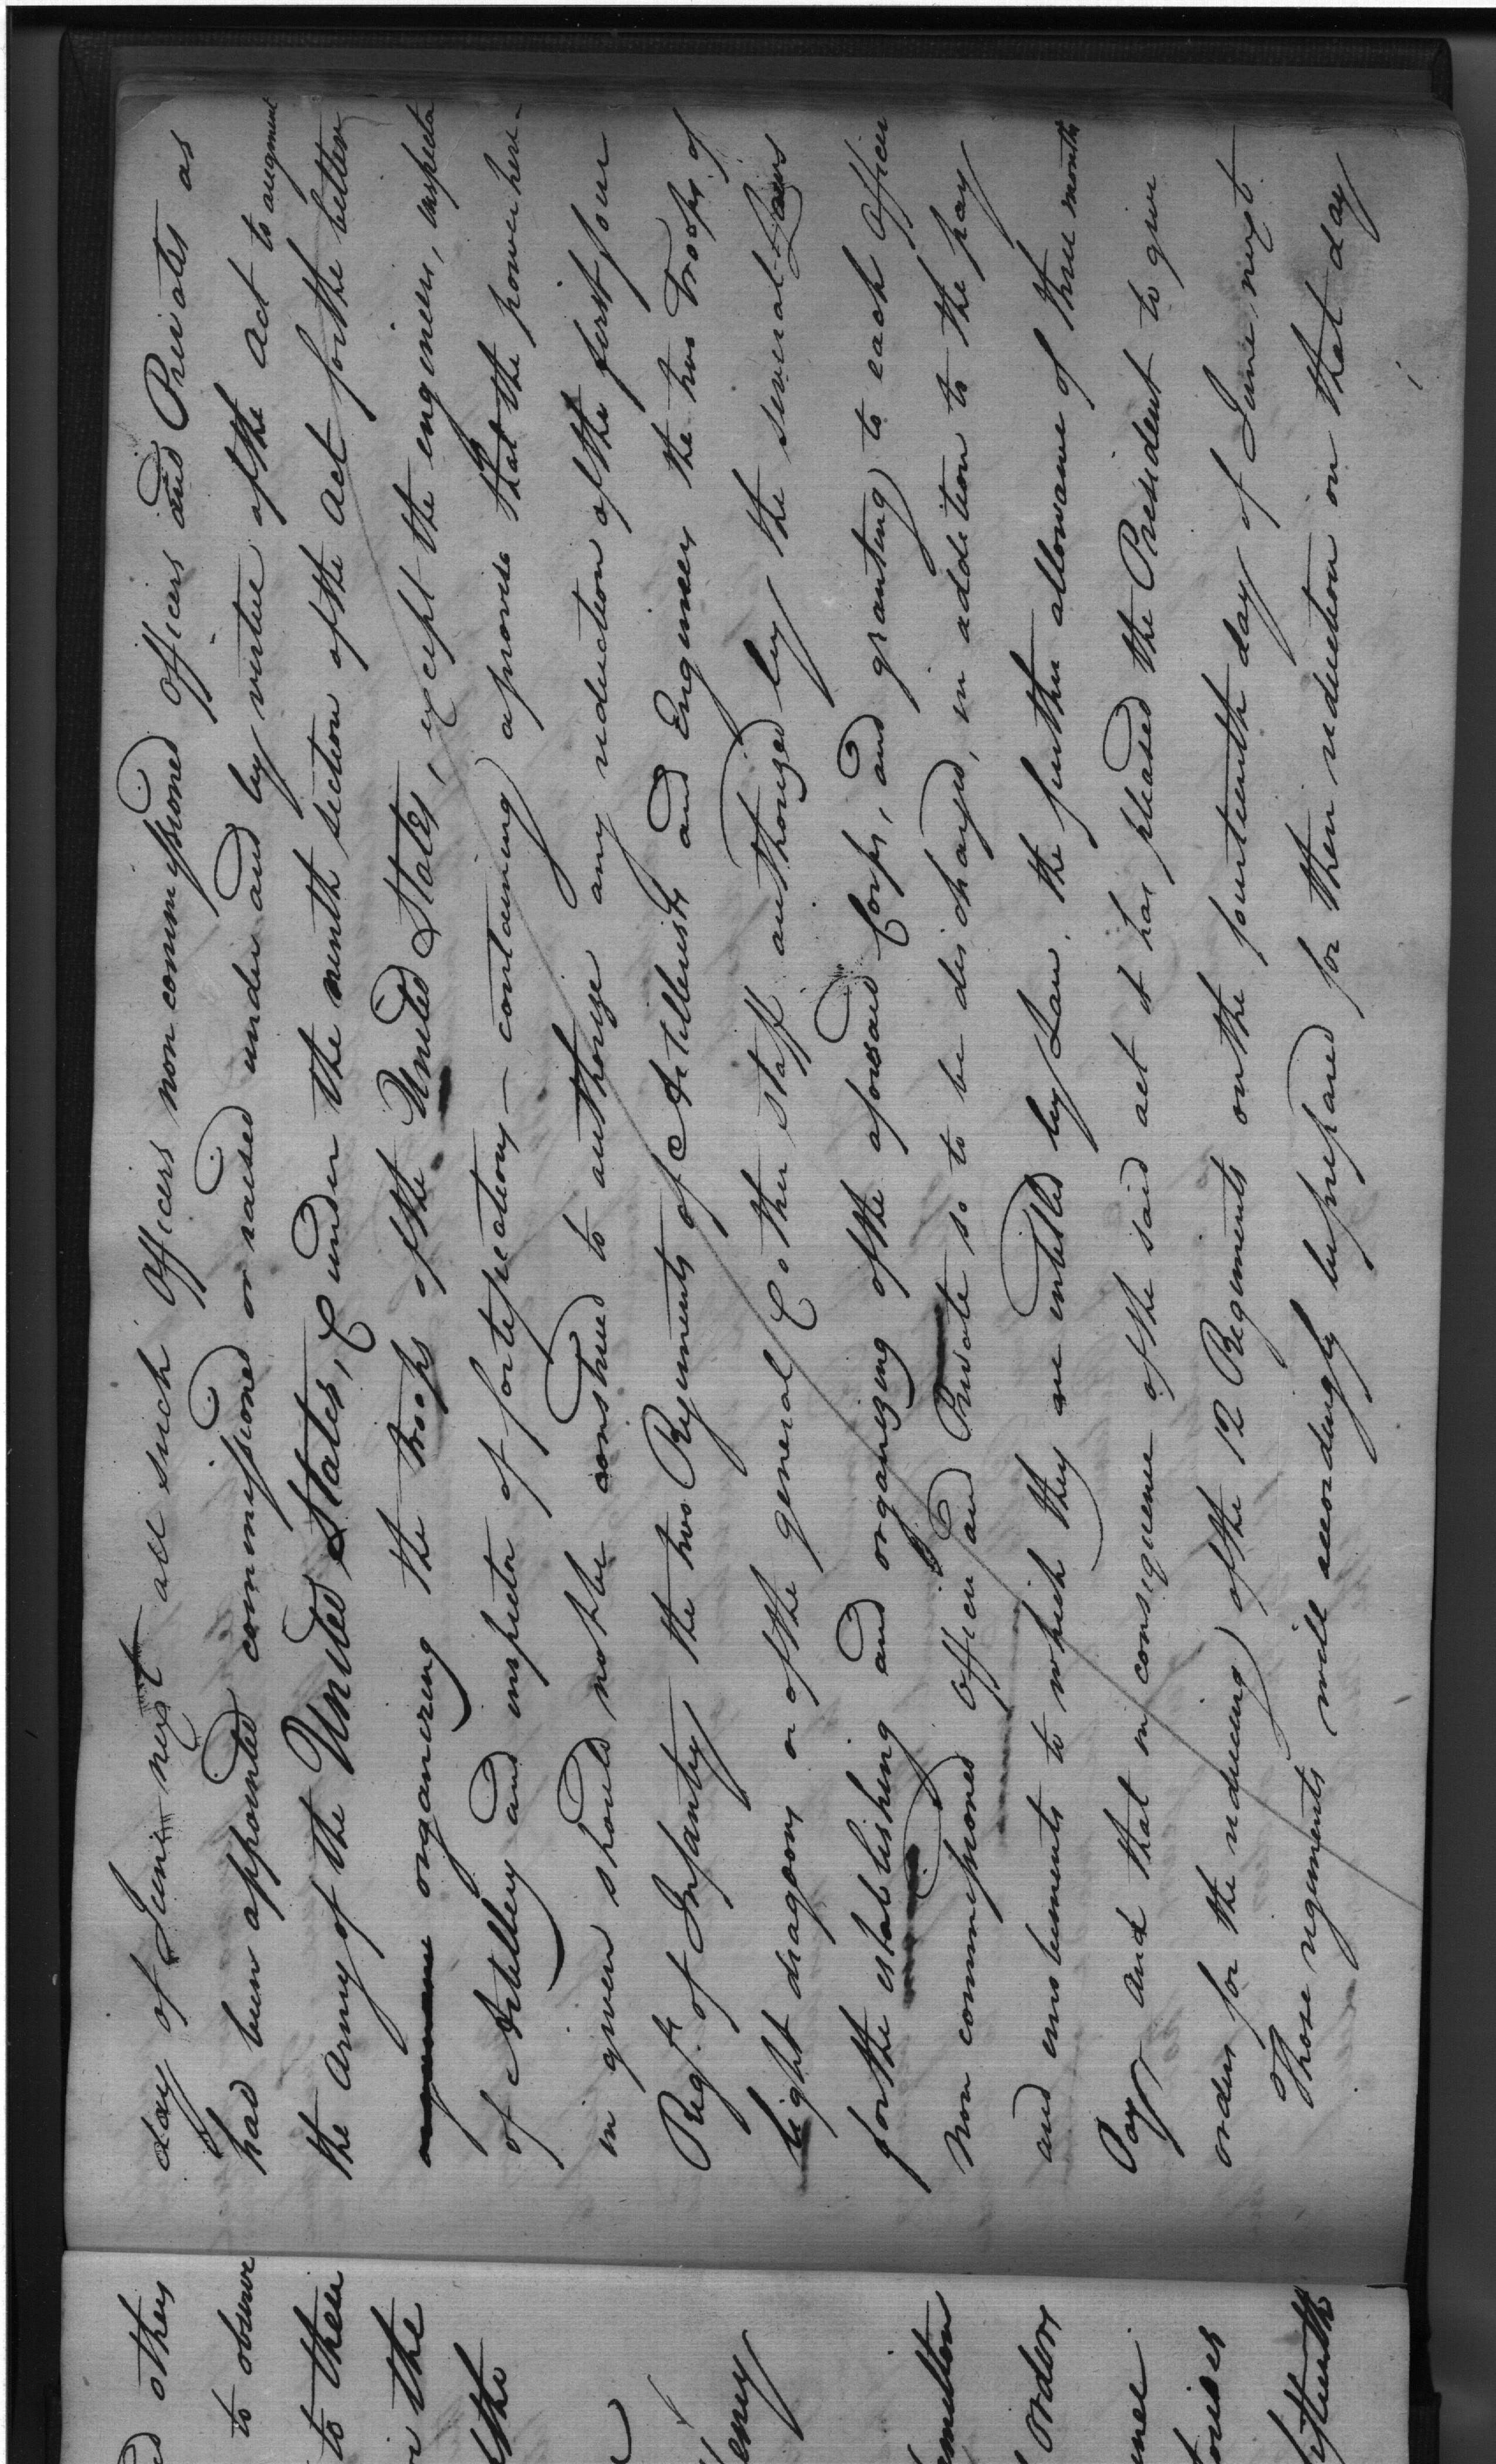 day of June next all such officers non commissioned officers and Privates as
had been appointed commissioned or raised under and by virtue of the act to augment
the army of the United States, & under the ninth section of the act for the better
organizing the troops of the United States, except the engineers, inspector
of Artillery and inspector of fortifications — containing a proviso that the power here-
in given should not be construed to authorize any reduction of the first four
Regts. of Infantry the two Regiments of Artillerists and Engineers the two Troops of
light dragoons or of the general & other staff authorized by the several Laws
for the establishing and organizing of the aforesaid Corps, and granting to each officer
non commissioned officer and Private so to be discharged, in addition to the pay
and emoluments to which they are entitled by Law, the further allowance of three months
Pay and that in consequence of the said act it has pleased the President to give
orders for the reducing of the 12 Regiments on the fourteenth day of June next
Those regiments will accordingly be prepared for their reduction on that day
others
to observe
to their
the
orders